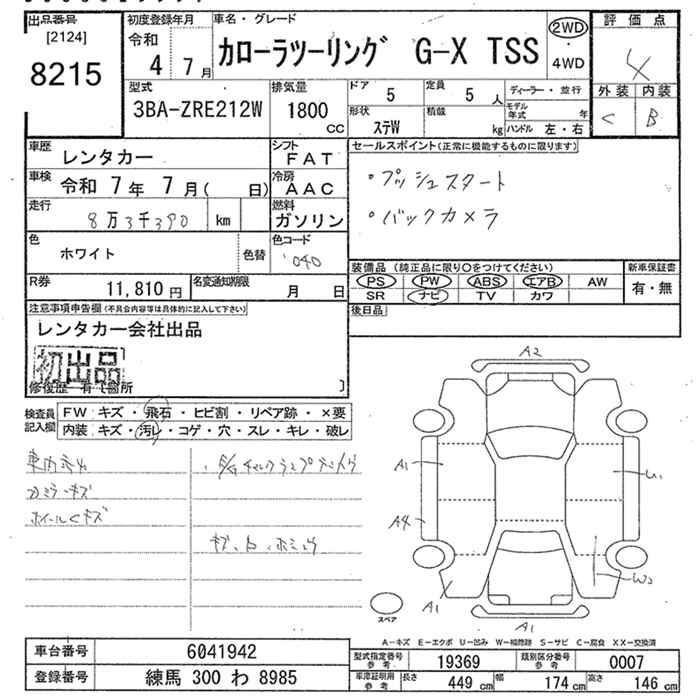 出品番号 初度登録年月 車名・グレード 評価点
[2124] 令和 2WD
8215 4年 7月 カローラツーリング G-X TSS ・4WD 4
型式 排気量 ドア 定員 ディーラー・並行 外装 内装
3BA-ZRE212W 1800 cc 5 5 人 モデル年式 年 C B
形状 積載
ステW kg ハンドル 左・右
車歴 レンタカー シフト FAT セールスポイント(正常に機能するものに限ります)
車検 令和 7年 7月( 日) 冷房 AAC ・プッシュスタート
走行 8万3千390 km 燃料 ガソリン ・バックカメラ
色 ホワイト 色替 色コード 040
装備品(純正品に限り○をつけてください) 新車保証書
R券 11,810円 名変通知期限 月 日 PS PW ABS エアB AW 有・無
SR ナビ TV カワ
注意事項申告欄(不具合内容等は具体的に記入して下さい) 後日品
レンタカー会社出品
初出品
修復歴 有 [箇所 ]
検査員記入欄 FW キズ・飛石・ヒビ割・リペア跡・×要
内装 キズ・汚レ・コゲ・穴・スレ・キレ・破レ
ホイールCキズ
A2
A1
U1
A4
W2
A1
A1
スペア
A-キズ E-エクボ U-凹み W-補修跡 S-サビ C-腐食 XX-交換済
車台番号 6041942 型式指定番号 参考 19369 類別区分番号 参考 0007
登録番号 練馬 300 わ 8985 車庫証明用 参考 長さ 449cm 幅 174cm 高さ 146cm